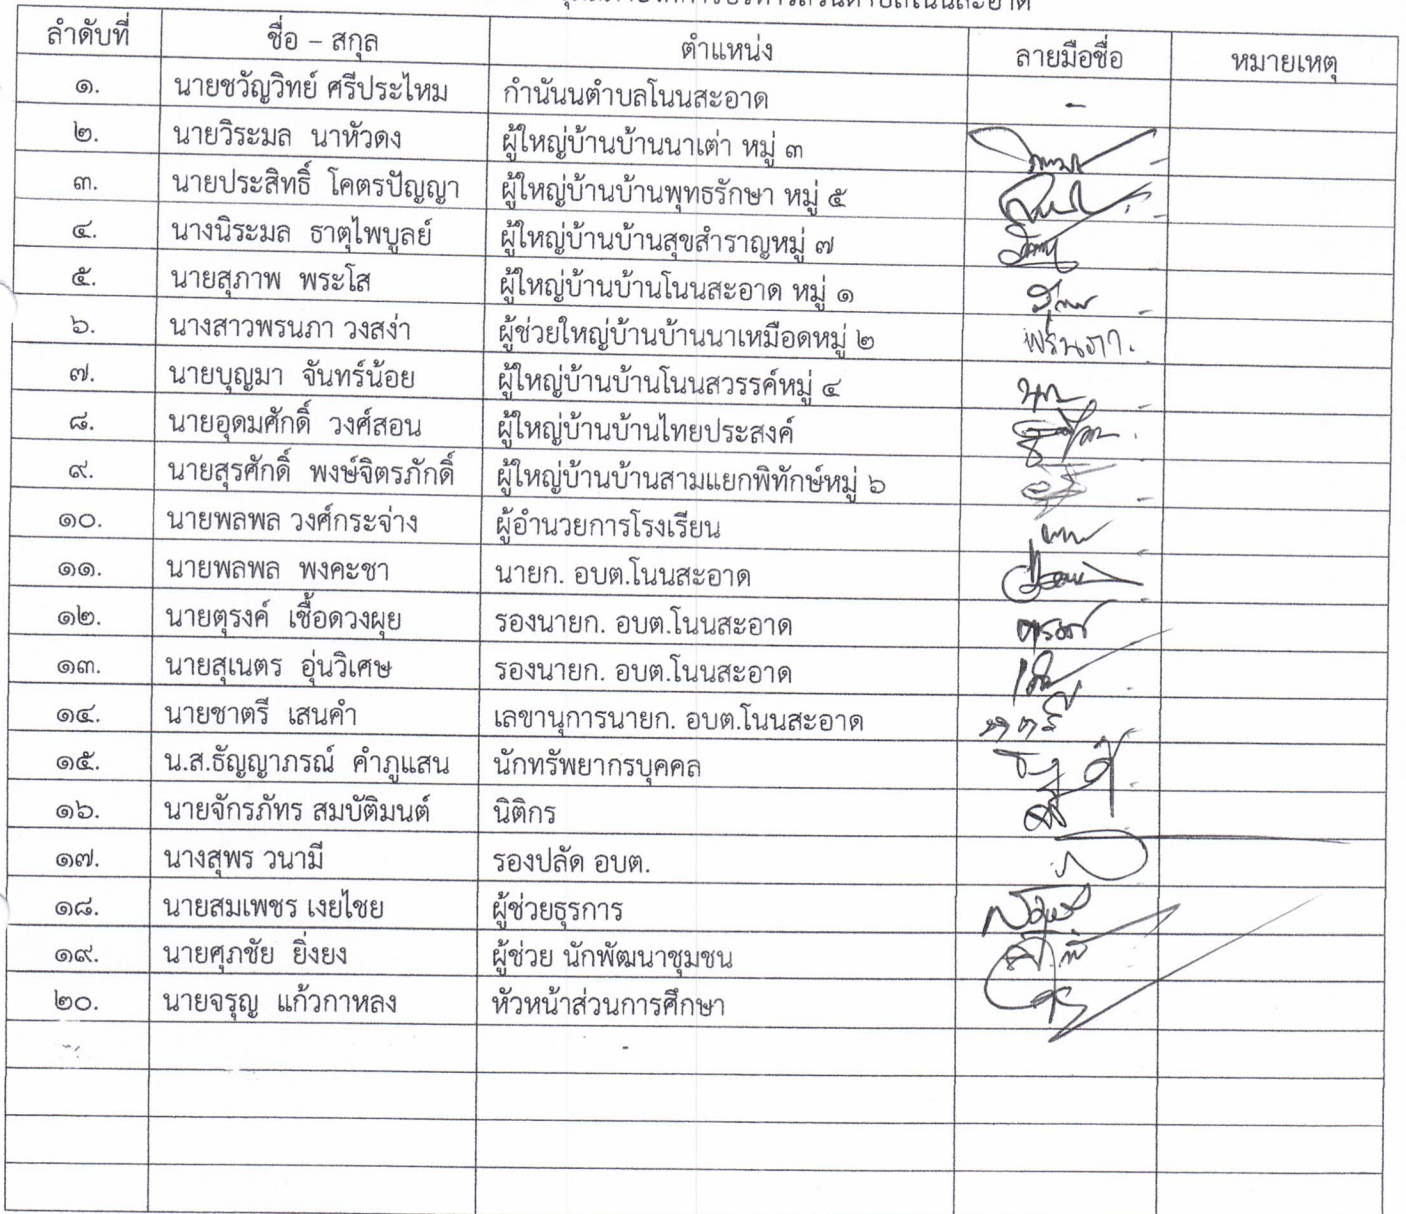 ลำดับที่ ชื่อ – สกุล ตำแหน่ง ลายมือชื่อ หมายเหตุ
๑. นายชวัญวิทย์ ศรีประไหม กำนันนตำบลโนนสะอาด -
๒. นายวิระมล นาหัวดง ผู้ใหญ่บ้านบ้านนาเต่า หมู่ ๓
๓. นายประสิทธิ์ โคตรปัญญา ผู้ใหญ่บ้านบ้านพุทธรักษา หมู่ ๕
๔. นางนิระมล ธาตุไพบูลย์ ผู้ใหญ่บ้านบ้านสุขสำราญหมู่ ๗
๕. นายสุภาพ พระโส ผู้ใหญ่บ้านบ้านโนนสะอาด หมู่ ๑
๖. นางสาวพรนภา วงสง่า ผู้ช่วยใหญ่บ้านบ้านนาเหมือดหมู่ ๒ พรนภา.
๗. นายบุญมา จันทร์น้อย ผู้ใหญ่บ้านบ้านโนนสวรรค์หมู่ ๔
๘. นายอุดมศักดิ์ วงศ์สอน ผู้ใหญ่บ้านบ้านไทยประสงค์
๙. นายสุรศักดิ์ พงษ์จิตรภักดิ์ ผู้ใหญ่บ้านบ้านสามแยกพิทักษ์หมู่ ๖
๑๐. นายพลพล วงศ์กระจ่าง ผู้อำนวยการโรงเรียน
๑๑. นายพลพล พงคะชา นายก. อบต.โนนสะอาด
๑๒. นายตุรงค์ เชื้อดวงผุย รองนายก. อบต.โนนสะอาด
๑๓. นายสุเนตร อุ่นวิเศษ รองนายก. อบต.โนนสะอาด
๑๔. นายชาตรี เสนคำ เลขานุการนายก. อบต.โนนสะอาด ชาตรี
๑๕. น.ส.ธัญญาภรณ์ คำภูแสน นักทรัพยากรบุคคล
๑๖. นายจักรภัทร สมบัติมนต์ นิติกร
๑๗. นางสุพร วนามี รองปลัด อบต.
๑๘. นายสมเพชร เงยไชย ผู้ช่วยธุรการ
๑๙. นายศุภชัย ยิ่งยง ผู้ช่วย นักพัฒนาชุมชน
๒๐. นายจรุญ แก้วกาหลง หัวหน้าส่วนการศึกษา